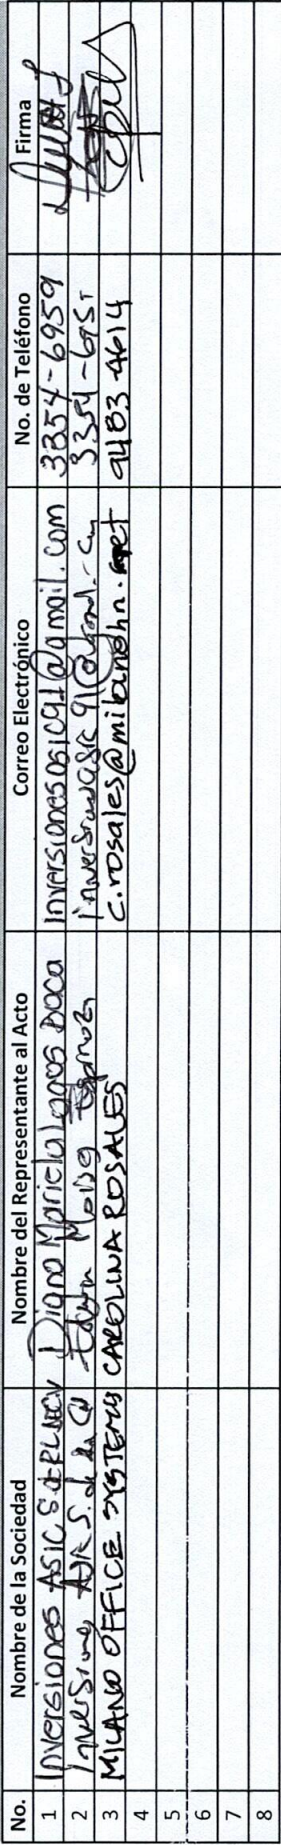 No. Nombre de la Sociedad Nombre del Representante al Acto Correo Electrónico No. de Teléfono Firma
1 Inversiones ASIC S de RL de CV Diana Lagos Baca inversionesasic91@gmail.com 3354-6959
2 Inversiones S. de Edgar 3354-695
3 MILANO OFFICE SYSTEMS CAROLINA ROSALES c.rosales@milanohn.net 9483-4614
4
5
6
7
8